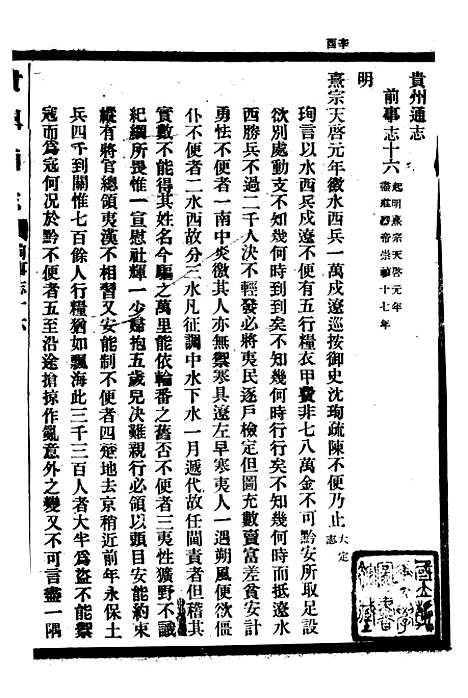 貴州通志
前事志十六 起明熹宗天啓元年 盡莊烈帝崇禎十七年
明
熹宗天啓元年徵水西兵一萬戍遼巡按御史沈珣疏陳不便乃止 大定志
珣言以水西兵戍遼不便有五行糧衣甲費非七八萬金不可黔安所取足設
欲別處動支不知幾何時到到矣不知幾何時行行矣不知幾何時而抵遼水
西勝兵不過二千人決不輕發必將夷民逐戶檢定但圖充數賣富差貧安計
勇怯不便者一南中炎徼其人亦無禦寒具遼左早寒夷人一遇朔風便欲僵
仆不便者二水西故分三水凡征調中水下水一月遞代故任閫責者但稽其
實數不能得其姓名今驅之萬里能依輪番之舊否不便者三夷性獷野不識
紀綱所畏惟一宣慰社輝一少婦抱五歲兒決難親行必領以頭目安能約束
縱有將官總領夷漢不相習又安能制不便者四楚地去京稍近前年永保土
兵四千到關惟七百餘人行糧猶如飄海此三千三百人者大半為盜不能禦
寇而為寇何況於黔不便者五至沿途搶掠作亂意外之變又不可言盡一隅
前事志十六